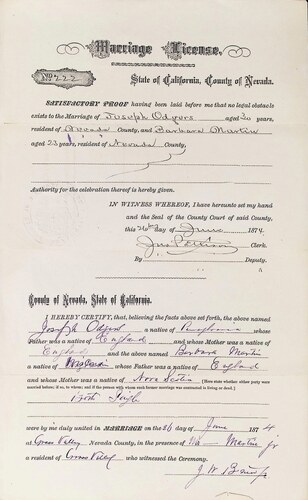 Marriage License.
No 222
State of California, County of Nevada.
SATISFACTORY PROOF having been laid before me that no legal obstacle
exists to the Marriage of Joseph Odgers aged years,
resident of Nevada County, and Barbara Martin
aged 23 years, resident of Nevada County,
Authority for the celebration thereof is hereby given.
IN WITNESS WHEREOF, I have hereunto set my hand
and the Seal of the County Court of said County,
this day of June 1874
Clerk.
By Deputy.
County of Nevada, State of California.
I HEREBY CERTIFY, that, believing the facts above set forth, the above named
Joseph a native of Pennsylvania whose
Father was a native of England and whose Mother was a native of
England and the above named Barbara Martin
a native of Wisconsin whose Father was a native of England
and whose Mother was a native of Nova Scotia (Here state whether either party were married before; if so, to whom;
Both Single
were by me duly united in MARRIAGE on the June 1874
at Grass Valley Nevada County, in the presence of Martin Jr
a resident of Grass Valley who witnessed the Ceremony.
J. W.